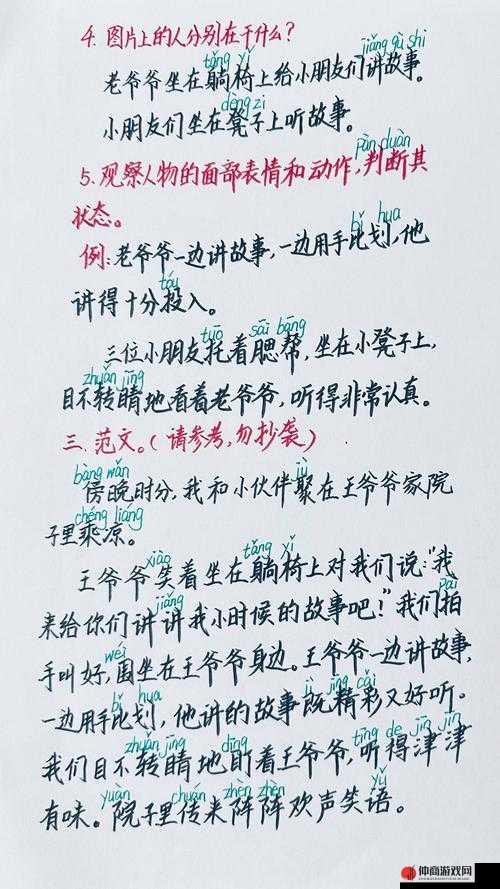 4. 图片上的人分别在干什么?
tǎng yǐ jiǎng gù shi
老爷爷坐在躺椅上给小朋友们讲故事。
dèng zi
小朋友们坐在凳子上听故事。
pàn duàn
5. 观察人物的面部表情和动作,判断其
状态。
bǐ hua
例:老爷爷一边讲故事,一边用手比划,他
tóu
讲得十分投入。
tuō sāi bāng
三位小朋友托着腮帮,坐在小凳子上,
zhuǎn jīng
目不转睛地看着老爷爷,听得非常认真。
三.范文。(请参考,勿抄袭)
bàng wǎn jù
傍晚时分,我和小伙伴聚在王爷爷家院
chéng liáng
子里乘凉。
xiào tǎng yǐ
王爷爷笑着坐在躺椅上对我们说:"我
jiǎng pāi
来给你们讲讲我小时候的故事吧!"我们拍
wéi
手叫好,围坐在王爷爷身边。王爷爷一边讲故事,
bǐ hua jì jīng cǎi
一边用手比划,他讲的故事既精彩又好听。
zhuǎn jīng dīng tīng de jīn jīn
我们目不转睛地盯着王爷爷,听得津津
yuàn chuán zhèn zhèn yǔ
有味。院子里传来阵阵欢声笑语。
仲商游戏网